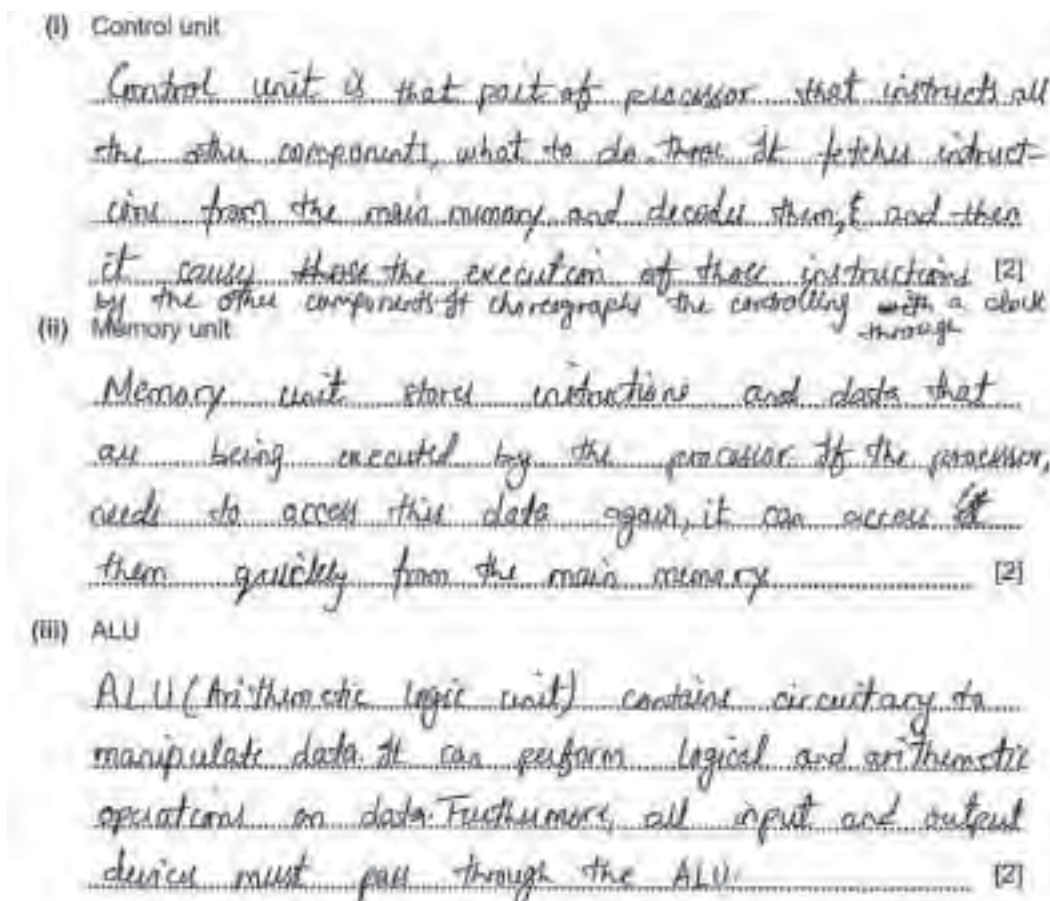 (i) Control unit
Control unit is that part of processor that instructs all
the other components, what to do. It fetches instruct-
ions from the main memory and decodes them, and then
it causes the execution of those instructions [2]
by the other components. It choreographs the controlling through a clock
(ii) Memory unit
Memory unit stores instructions and data that
are being executed by the processor. If the processor,
needs to access this data again, it can access
them quickly from the main memory [2]
(iii) ALU
ALU (Arithemetic logic unit) contains circuitary to
manipulate data. It can perform logical and arithemetic
operations on data. Furthermore, all input and output
devices must pass through the ALU. [2]